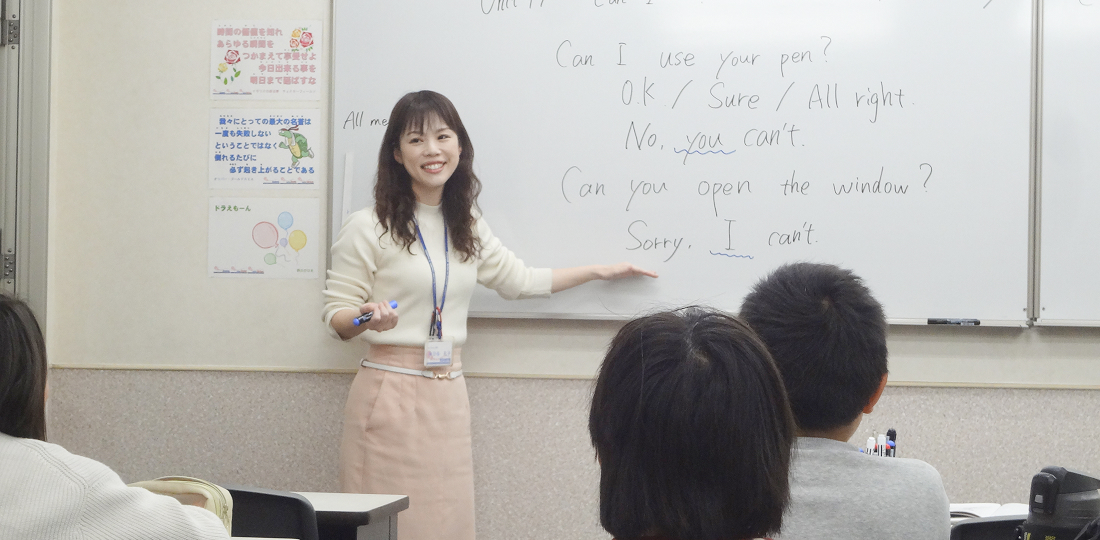 瞬間の価値を知れ
あらゆる瞬間を
つかまえて享受せよ
今日出来る事を
明日まで延ばすな
我々にとっての最大の名誉は
一度も失敗しない
ということではなく
倒れるたびに
必ず起き上がることである
ドラえもーん
All me
Can I use your pen?
O.K. / Sure / All right.
No, you can't.
Can you open the window?
Sorry, I can't.